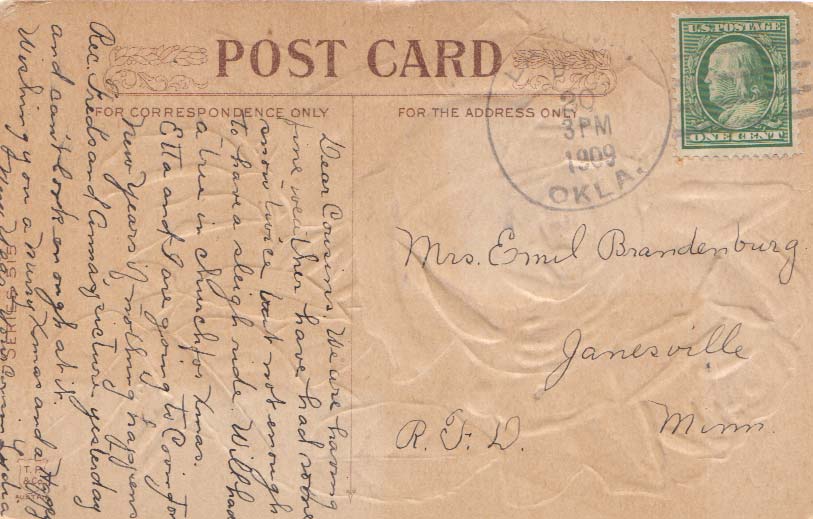 POST CARD
FOR CORRESPONDENCE ONLY
FOR THE ADDRESS ONLY
U.S. POSTAGE
ONE CENT
20
3 PM
1909
OKLA.
Dear Cousins. We are having
fine weather have had some
snow twice but not enough
to have a sleigh ride. Will had
a tree in church for Xmas.
Etta and I are going to Covington
New Years if nothing happens
Rec. Freds and Annas picture yesterday
and can't look enough at it.
Wishing you a Merry Xmas and a Happy
New Year
Mrs. Emil Brandenburg.
Janesville
R. F. D.
Minn.
SERIES